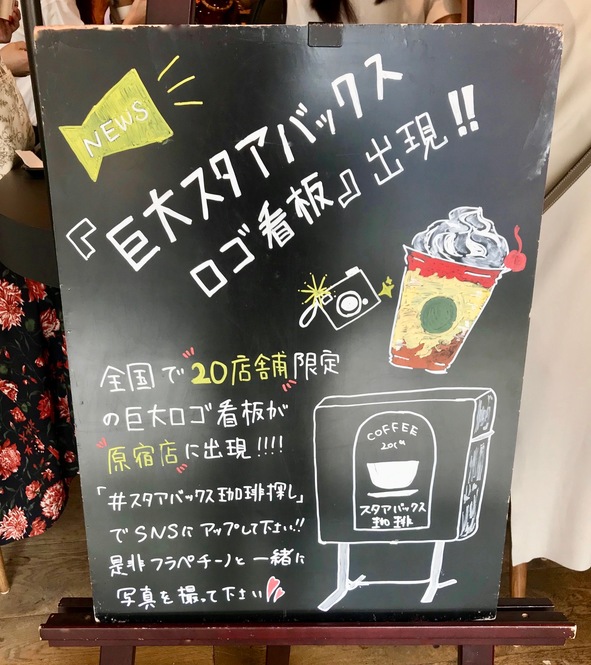 NEWS
『巨大スタアバックス
ロゴ看板』出現!!
全国で20店舗限定
の巨大ロゴ看板が
原宿店に出現!!!!
「#スタアバックス珈琲探し」
でSNSにアップして下さい!!
是非フラペチーノと一緒に
写真を撮って下さい
COFFEE
20th
スタアバックス
珈琲